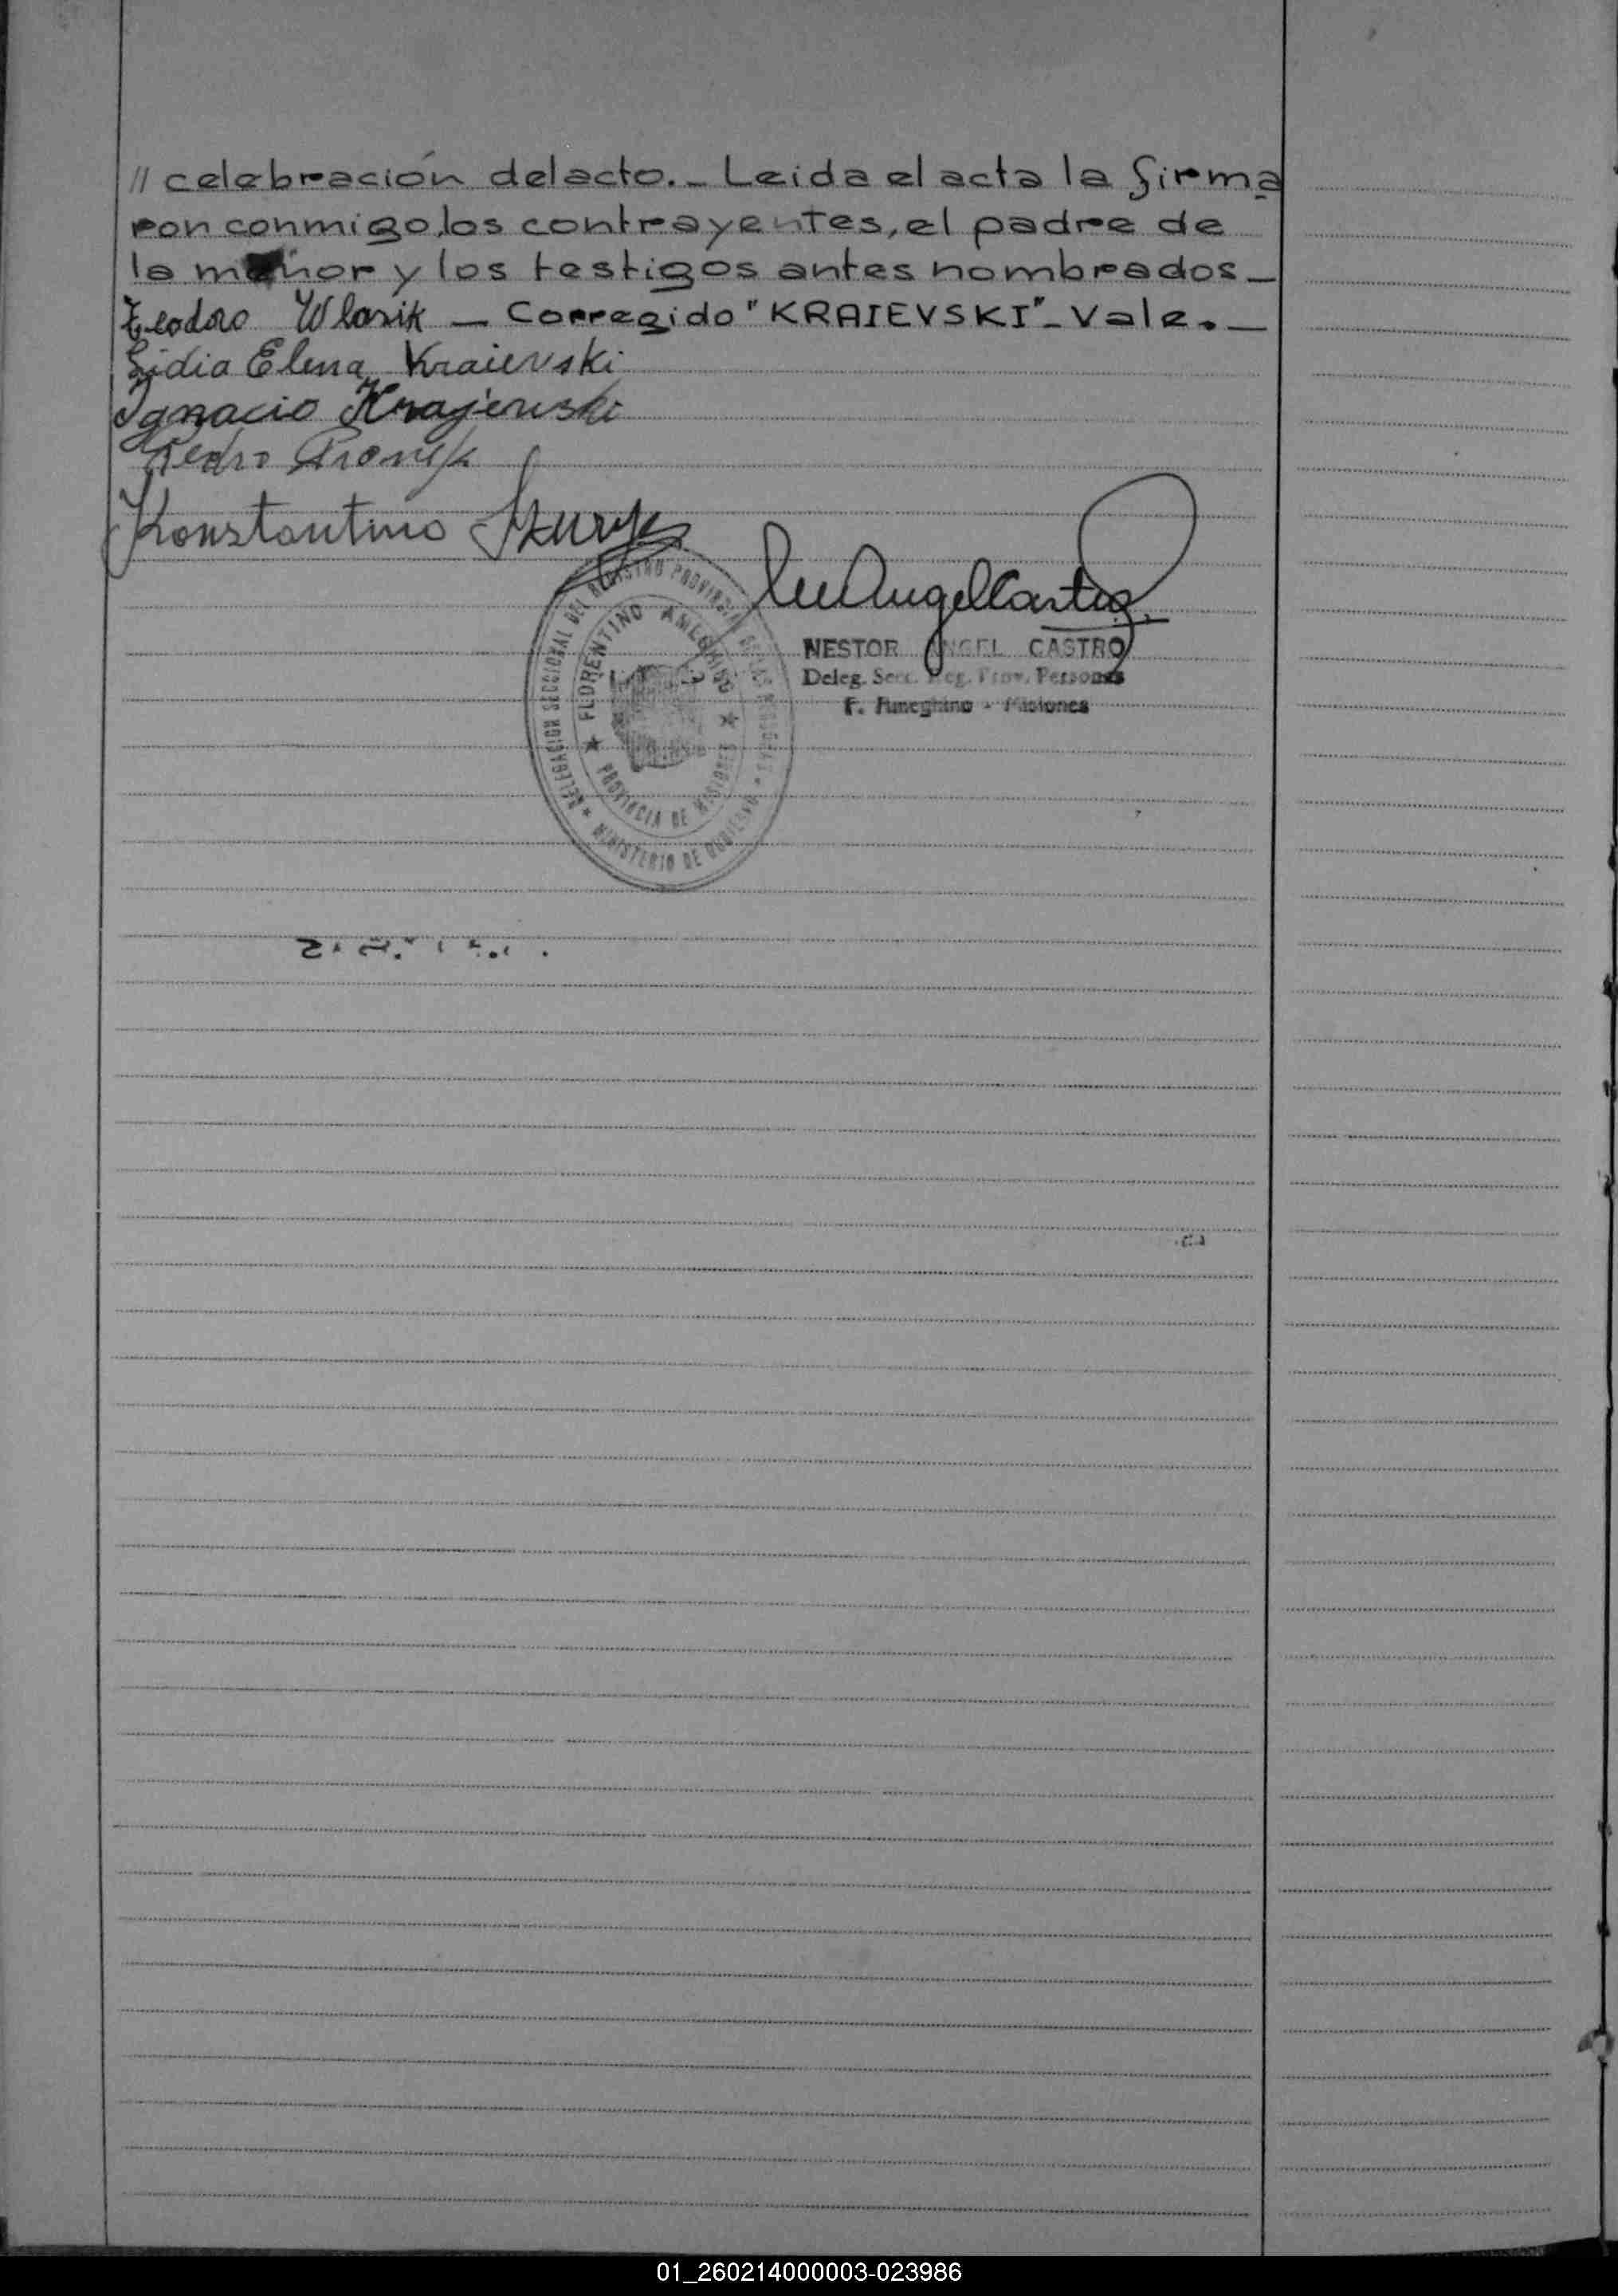 // celebración del acto._ Leida el acta la firma
ron conmigo, los contrayentes, el padre de
la menor y los testigos antes nombrados_
Teodoro Wlasik — Corregido "KRAIEVSKI"_Vale._
Lidia Elena Kraievski
Ignacio Krajewski
Pedro
Konstantino
NESTOR ANGEL CASTRO
Deleg. Secc. Reg. Prov. Personas
F. Ameghino - Misiones
DELEGACION SECCIONAL DEL REGISTRO PROVINCIAL DE LAS PERSONAS
FLORENTINO AMEGHINO
PROVINCIA DE MISIONES
MINISTERIO DE GOBIERNO
01_260214000003-023986